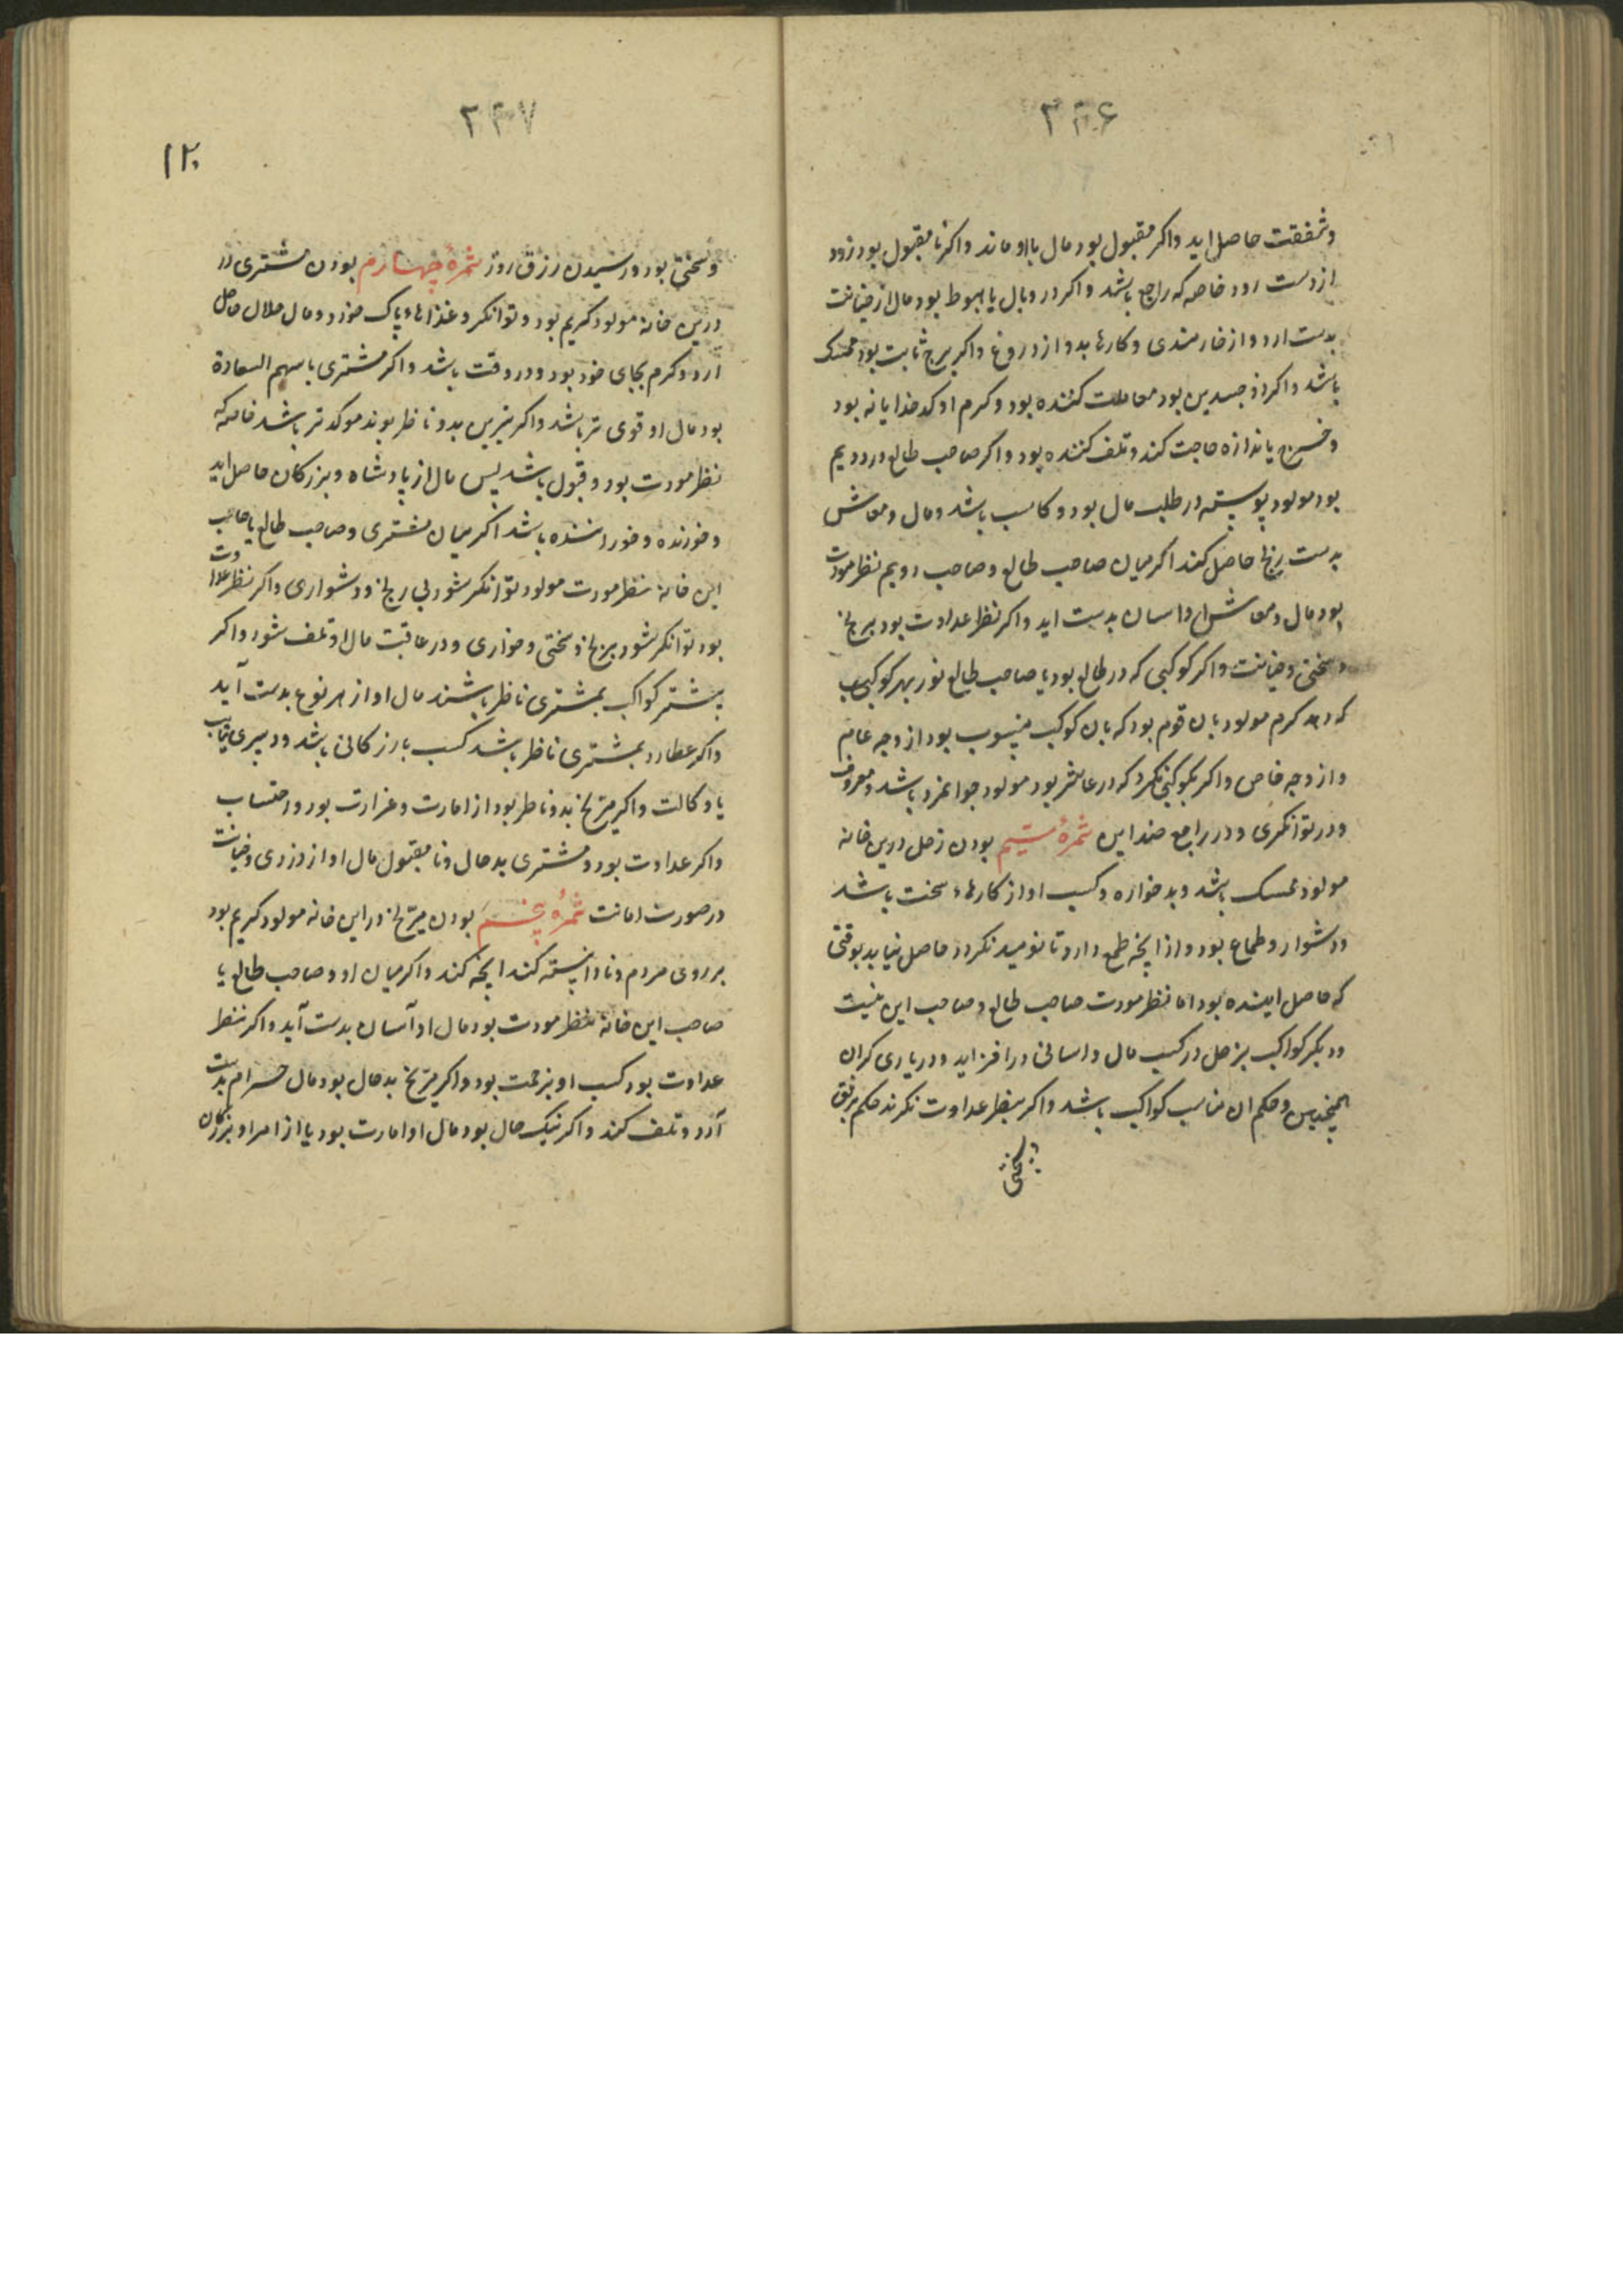 ۳۴۶
وشفقت حاصل اید واکر مقبول بود مال بااو ماند واکر نا مقبول بود زود
از دست رود خاصه که راجع باشد واکر در وبال یا هبوط بود مال از خیانت
بدست ارد واز خارمندی وکارهاء بد واز دروغ واکر برج ثابت بود ممسک
باشد واکر ذو جسدین بود معاملت کننده بود وکرم او کدخدایانه بود
وخرج باندازه حاجت کند وتلف کننده بود واکر صاحب طالع در دویم
بود مولود پیوسته در طلب مال بود وکاسب باشد ومال ومعاش
بدست رنج حاصل کند اکر میان صاحب طالع وصاحب دویم نظر مودت
بود مال ومعاش او اسان بدست اید واکر نظر عداوت بود برنج
وسختی وخیانت واکر کوکبی که در طالع بود یا صاحب طالع نور بهر کوکبی
که دهد کرم مولود بان قوم بود که بان کوکب منسوب بود از وجه عام
واز وجه خاص واکر بکوکبی نکرد که در عاشر بود مولود جوانمرد باشد ومعروف
ودر توانکری ودر رابع ضد این ثمرهٔ سیم بودن زحل درین خانه
مولود ممسک باشد وبد خواره وکسب او از کارهاء سخت باشد
ودشوار وطماع بود واز انچه طمع دارد تا نومید نکردد حاصل نیابد بوقتی
که حاصل اینده بود اما نظر مودت صاحب طالع وصاحب این بیت
ودیکر کواکب بزحل در کسب مال واسانی در افزاید ودر یاری کران
همچنین وحکم ان مناسب کواکب باشد واکر بنظر عداوت نکرند حکم برفق
وسختی
۳۴۷
۱۲۰
وسختی بود ورسیدن رزق روز ثمرهٔ چهارم بودن مشتری در
درین خانه مولود کریم بود وتوانکر وغذاهاء پاک خورد ومال حلال حاصل
آرد وکرم بجای خود بود ودر وقت باشد واکر مشتری با سهم السعادة
بود مال او قوی تر باشد واکر نیرین بدو ناظر بوند موکد تر باشد خاصه که
نظر مودت بود وقبول باشد پس مال از پادشاه وبزرکان حاصل اید
وخورنده وخوراننده باشد اکر میان مشتری وصاحب طالع یا صاحب
این خانه نظر مودت مولود توانکر شود بی رنج ودشواری واکر نظر عداوت
بود توانکر شود برنج وسختی وخواری ودر عاقبت مال او تلف شود واکر
بیشتر کواکب بمشتری ناظر باشند مال او از هر نوع بدست آید
واکر عطارد بمشتری ناظر باشد کسب بازرکانی باشد ودبیری
یا وکالت واکر مریخ بدو ناظر بود از امارت وغرارت بود واحتساب
واکر عداوت بود ومشتری بد حال ونا مقبول مال او از دزدی وخیانت
در صورت امانت ثمرهٔ پنجم بودن مریخ در این خانه مولود کریم بود
بر روی مردم ونا دانسته کند انچه کند واکر میان او وصاحب طالع یا
صاحب این خانه نظر مودت بود مال او آسان بدست آید واکر نظر
عداوت بود کسب او بزحمت بود واکر مریخ بد حال بود مال حرام بدست
آرد وتلف کند واکر نیک حال بود مال او امارت بود یا از امرا وبزرکان